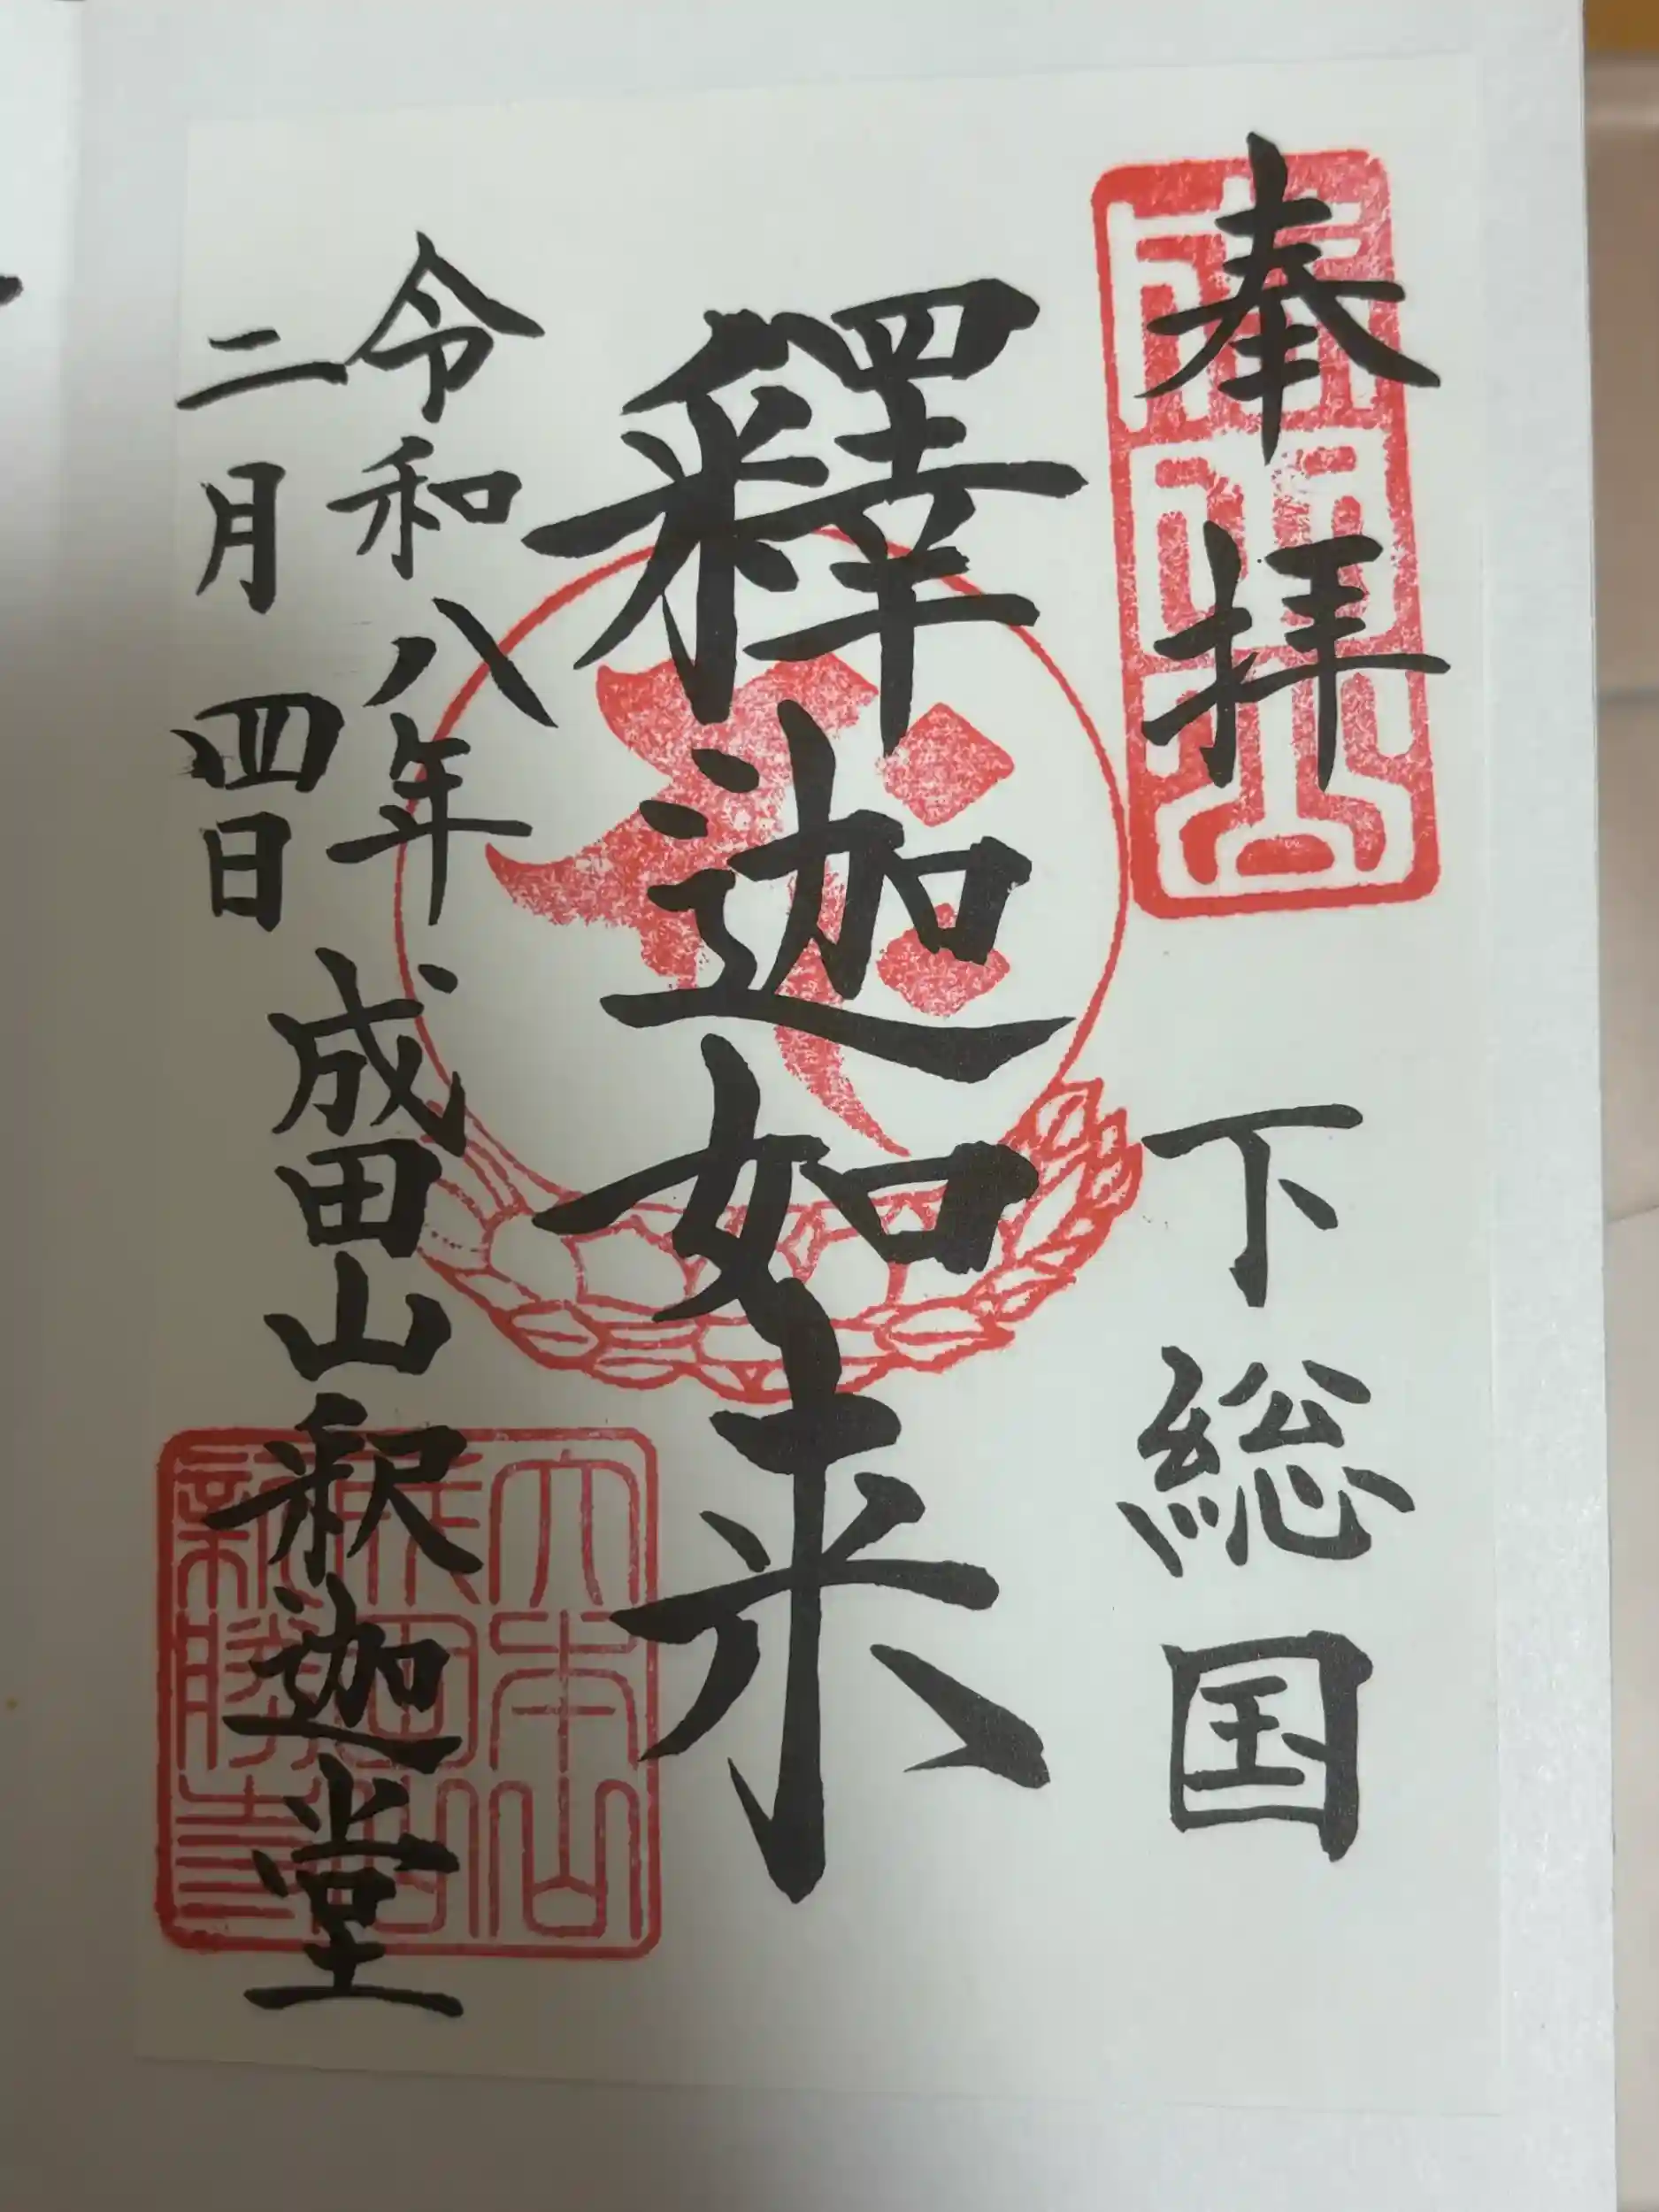 奉拝
下総国
釋迦如来
令和八年
二月四日
成田山釈迦堂
大本山
成田山
新勝寺